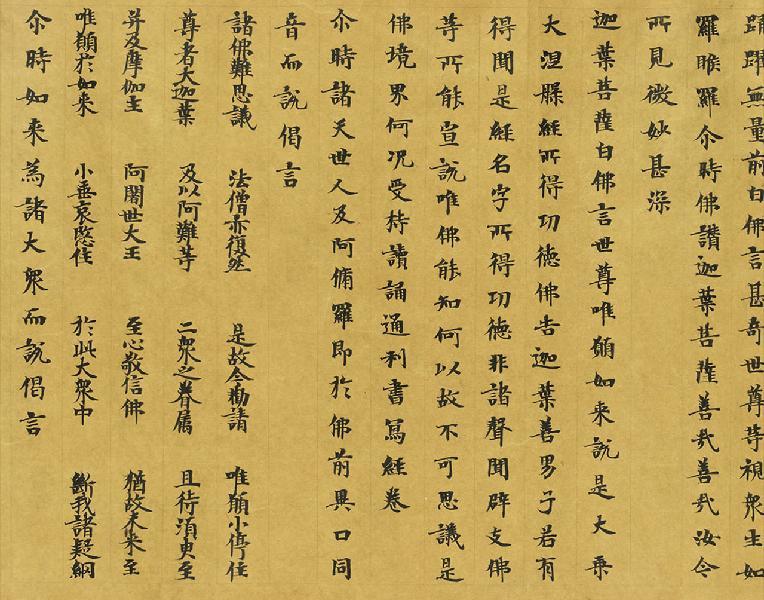 踊躍無量前白佛言甚奇世尊等視衆生如
羅睺羅尒時佛讃迦葉菩薩善㢤善㢤汝今
所見微妙甚深
迦葉菩薩白佛言世尊唯願如来說是大乗
大涅槃經所得功德佛告迦葉善男子若有
得聞是經名字所得功德非諸聲聞辟支佛
等所能宣說唯佛能知何以故不可思議是
佛境界何况受持讀誦通利書寫經卷
尒時諸天世人及阿脩羅即於佛前異口同
音而說偈言
諸佛難思議 法僧亦復然 是故今勸請 唯願小停住
尊者大迦葉 及以阿難等 二衆之眷属 且待湏臾至
并及摩伽主 阿闍世大王 至心敬信佛 猶故未來至
唯願於如来 小垂哀愍住 於此大衆中 斷我諸疑網
尒時如来為諸大衆而說偈言